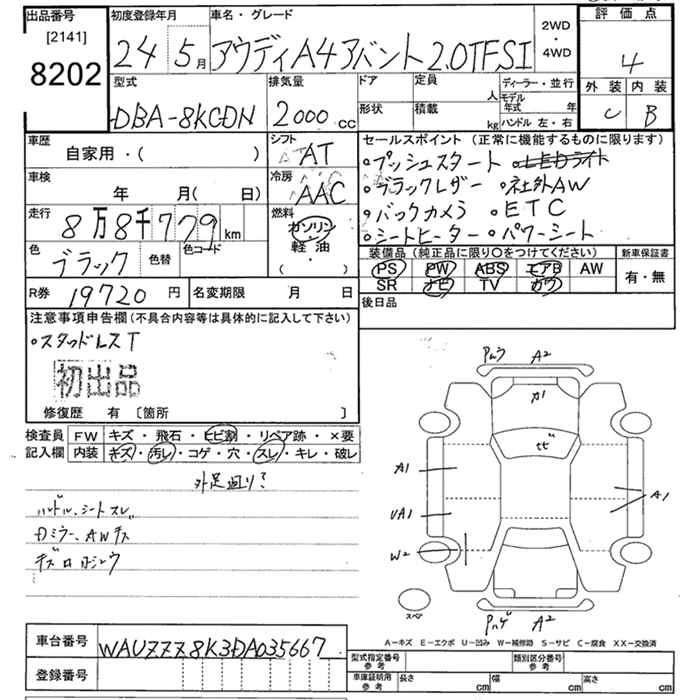 出品番号
[2141]
8202
初度登録年月
24 5月
車名・グレード
アウディA4アバント2.0TFSI
2WD
・
4WD
評価点
4
外装 内装
C B
型式
DBA-8KCDN
排気量
2000 cc
ドア
形状
定員 人
積載 kg
ディーラー・並行
モデル年式 年
ハンドル 左・右
車歴
自家用・( )
シフト
AT
車検
年 月( 日)
冷房
AAC
走行
8万8千779km
燃料
ガソリン
軽油・
( ・ )
色
ブラック
色替
色コード
R券 19720円
名変期限 月 日
セールスポイント (正常に機能するものに限ります)
・プッシュスタート ・LEDライト
・ブラックレザー ・社外AW
・バックカメラ ・ETC
・シートヒーター ・パワーシート
装備品 (純正品に限り〇をつけてください)
PS PW ABS エアB AW
SR ナビ TV カワ
新車保証書
有・無
後日品
注意事項申告欄(不具合内容等は具体的に記入して下さい)
・スタッドレスT
初出品
修復歴 有 〔箇所 〕
検査員
記入欄
FW キズ・飛石・ヒビ割・リペア跡・×要
内装 キズ・汚レ・コゲ・穴・スレ・キレ・破レ
外足廻り?
ハンドル、シートスレ
Dミラー、AWキズ
PムラA2
A1
ヒビ
A1
UA1
W2
A1
スペア
PハゲA2
A－キズ E－エクボ U－凹み W－補修跡 S－サビ C－腐食 XX－交換済
車台番号
WAUZZZ8K3DA035667
登録番号
型式指定番号
参考
類別区分番号
参考
車庫証明用
参考
長さ cm
幅 cm
高さ cm